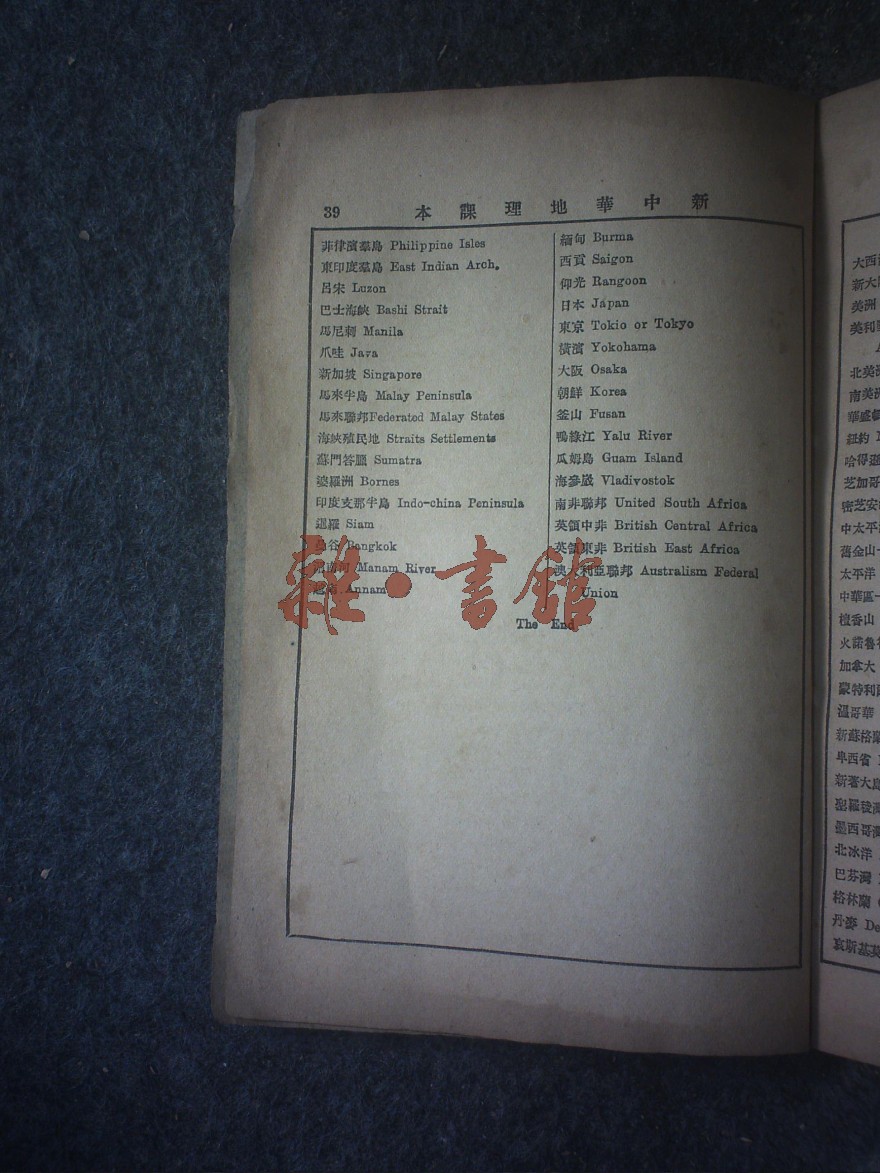 39 本課理地華中新
菲律濱羣島 Philippine Isles
東印度羣島 East Indian Arch.
呂宋 Luzon
巴士海峽 Bashi Strait
馬尼剌 Manila
爪哇 Java
新加坡 Singapore
馬來半島 Malay Peninsula
馬來聯邦Federated Malay States
海峽殖民地 Straits Settlements
蘇門答臘 Sumatra
婆羅洲 Bornes
印度支那半島 Indo-china Peninsula
暹羅 Siam
谷 Bangkok
河 Manam River
Annam
緬甸 Burma
西貢 Saigon
仰光 Rangoon
日本 Japan
東京 Tokio or Tokyo
橫濱 Yokohama
大阪 Osaka
朝鮮 Korea
釜山 Fusan
鴨綠江 Yalu River
瓜姆島 Guam Island
海參崴 Vladivostok
南非聯邦 United South Africa
英領中非 British Central Africa
英領東非 British East Africa
澳大利亞聯邦 Australism Federal
Union
The End
雜·書館
大西
新大
美洲
英利
北美洲
南美洲
華盛頓
紐約
哈得遜
芝加哥
密芝安
中太平
舊金山
太平洋
中華區
檀香山
火諾魯
加拿大
蒙特利
溫哥華
新蘇格蘭
卑西省
新著大島
聖羅稜
墨西哥灣
北冰洋
巴芬灣
格林蘭
丹麥 De
哀斯基莫